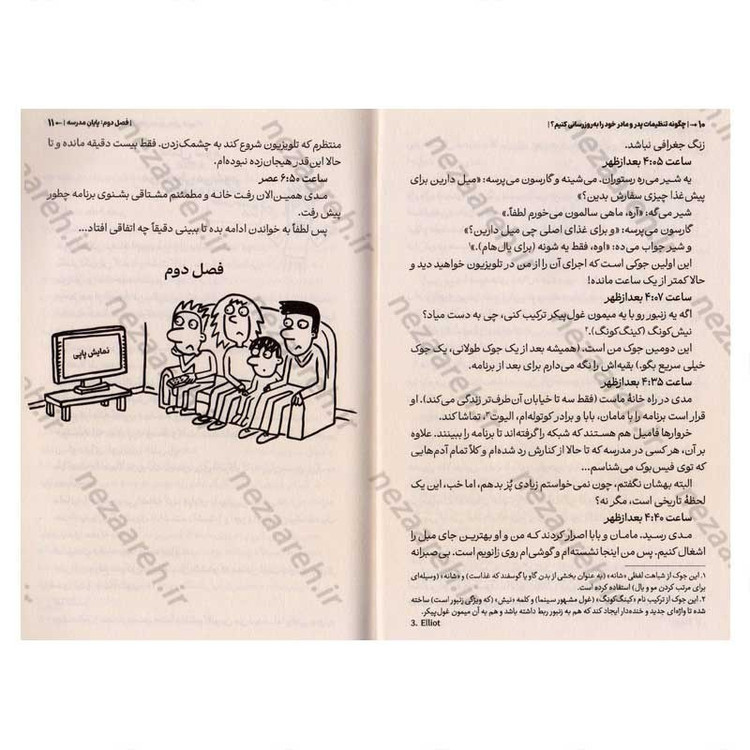 ۱۰ ← | چگونه تنظیمات پدر و مادر خود را به‌روزرسانی کنیم؟ |
زنگ جغرافی نباشد.
ساعت ۴:۰۵ بعدازظهر
یه شیر می‌ره رستوران. می‌شینه و گارسون می‌پرسه: «میل دارین برای
پیش‌غذا چیزی سفارش بدین؟»
شیر می‌گه: «آره، ماهی سالمون می‌خورم لطفاً.»
گارسون می‌پرسه: «و برای غذای اصلی چی میل دارین؟»
و شیر جواب می‌ده: «اوه، فقط یه شونه (برای یال‌هام).»۱
این اولین جوکی است که اجرای آن را از من در تلویزیون خواهید دید و
حالا کمتر از یک ساعت مانده!
ساعت ۴:۰۷ بعدازظهر
اگه یه زنبور رو با یه میمون غول‌پیکر ترکیب کنی، چی به دست میاد؟
نیش‌کونگ (کینگ‌کونگ).۲
این دومین جوک من است. (همیشه بعد از یک جوک طولانی، یک جوک
خیلی سریع بگو.) بقیه‌اش را نگه می‌دارم برای بعد از برنامه.
ساعت ۴:۳۵ بعدازظهر
مدی در راه خانهٔ ماست (فقط سه تا خیابان آن‌طرف‌تر زندگی می‌کند). او
قرار است برنامه را با مامان، بابا و برادر کوتوله‌ام، الیوت۳، تماشا کند.
خروارها فامیل هم هستند که شبکه را گرفته‌اند تا برنامه را ببینند. علاوه
بر آن، هر کسی در مدرسه که تا حالا از کنارش رد شده‌ام و کلاً تمام آدم‌هایی
که توی فیس‌بوک می‌شناسم...
البته بهشان نگفتم، چون نمی‌خواستم زیادی پُز بدهم، اما خب، این یک
لحظهٔ تاریخی است، مگر نه؟
ساعت ۴:۴۰ بعدازظهر
مدی رسید. مامان و بابا اصرار کردند که من و او بهترین جای مبل را
اشغال کنیم. پس من اینجا نشسته‌ام و گوشی‌ام روی زانویم است. بی‌صبرانه
۱. این جوک از شباهت لفظی «شانه» (به عنوان بخشی از بدن گاو یا گوسفند که غذاست) و «شانه» (وسیله‌ای
برای مرتب کردن مو و یال) استفاده کرده است.
۲. این جوک از ترکیب نام «کینگ‌کونگ» (غول مشهور سینما) و کلمه «نیش» (که ویژگی زنبور است) ساخته
شده تا واژه‌ای جدید و خنده‌دار ایجاد کند که هم به زنبور ربط داشته باشد و هم به آن میمون غول‌پیکر.
3. Elliot
| فصل دوم: پایان مدرسه | → ۱۱
منتظرم که تلویزیون شروع کند به چشمک‌زدن. فقط بیست دقیقه مانده و تا
حالا این‌قدر هیجان‌زده نبوده‌ام.
ساعت ۶:۵۰ عصر
مدی همین‌الان رفت خانه و مطمئنم مشتاقی بشنوی برنامه چطور
پیش رفت.
پس لطفاً به خواندن ادامه بده تا ببینی دقیقاً چه اتفاقی افتاد...
فصل دوم
نمایش پاپی
nezaareh.ir